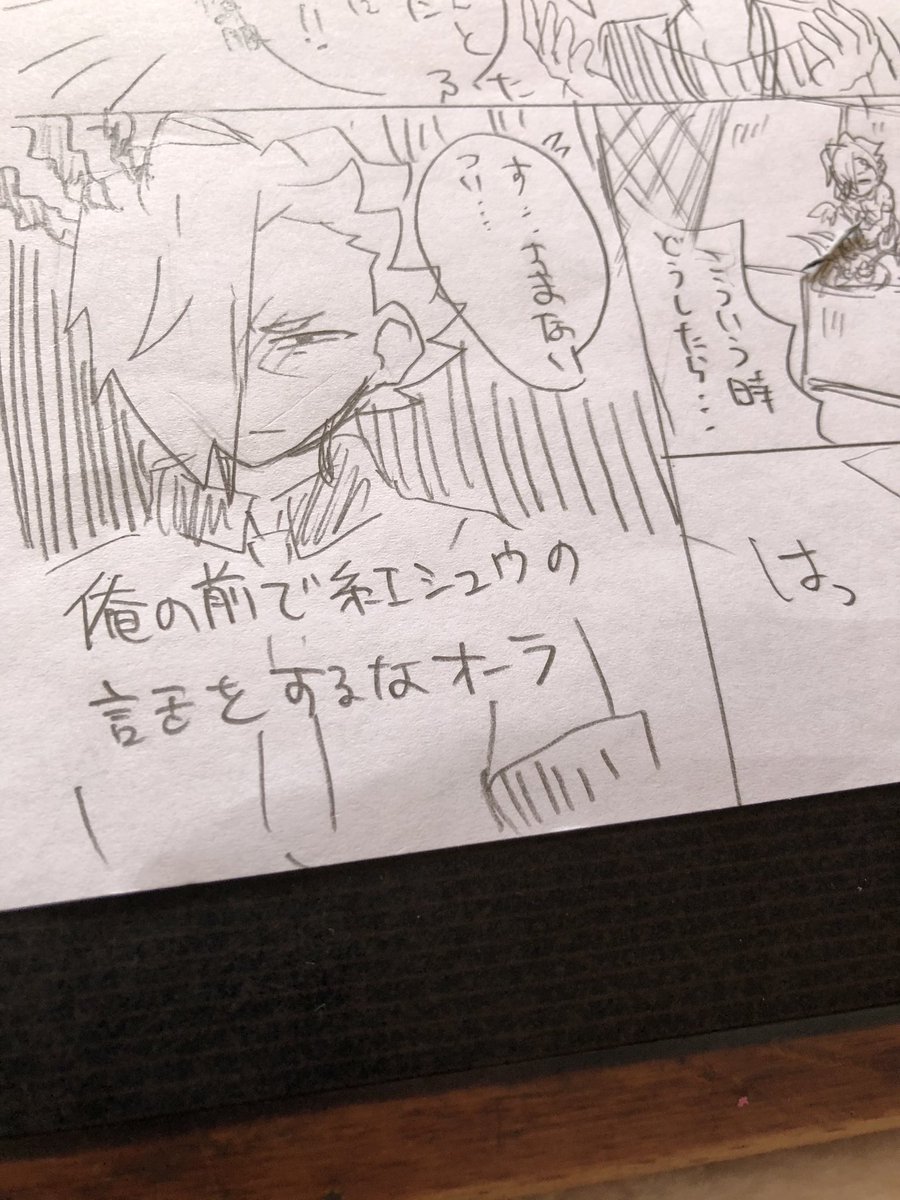 !!
こういう時
どうしたら…
はっ
す…すまない
つい…
俺の前で紅シュウの
話をするなオーラ